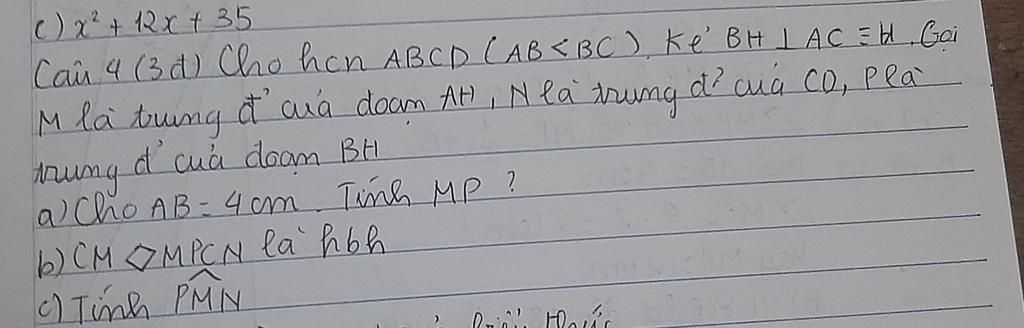 c) x² + 12x + 35
Câu 4 (3đ) Cho hcn ABCD (AB < BC). Kẻ BH ⊥ AC ≡ H. Gọi
M là trung đ' của đoạn AH, N là trung đ' của CD, P là
trung đ' của đoạn BH
a) Cho AB = 4cm. Tính MP ?
b) CM ▱ MPCN là hbh
c) Tính PMN